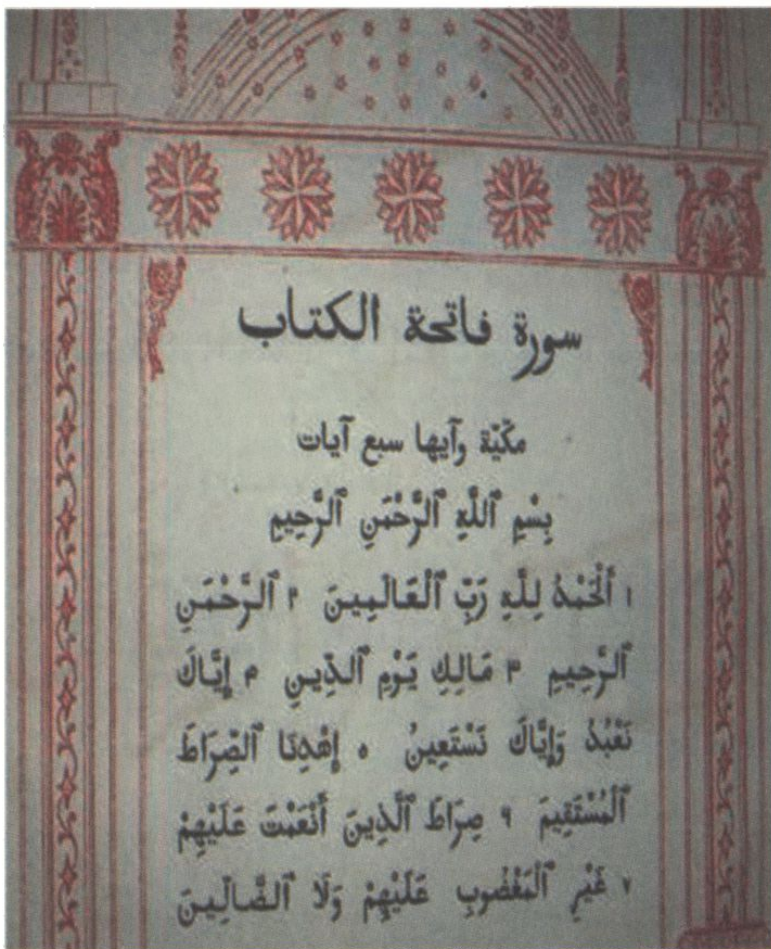 سورة فاتحة الكتاب
مكّيّة وآيها سبع آيات
بِسْمِ ٱللَّهِ ٱلرَّحْمَنِ ٱلرَّحِيمِ
١ ٱلْحَمْدُ لِلَّهِ رَبِّ ٱلْعَالَمِينَ ٢ ٱلرَّحْمَنِ
ٱلرَّحِيمِ ٣ مَالِكِ يَوْمِ ٱلدِّينِ ٤ إِيَّاكَ
نَعْبُدُ وَإِيَّاكَ نَسْتَعِينُ ٥ إِهْدِنَا ٱلصِّرَاطَ
ٱلْمُسْتَقِيمَ ٦ صِرَاطَ ٱلَّذِينَ أَنْعَمْتَ عَلَيْهِمْ
٧ غَيْرِ ٱلْمَغْضُوبِ عَلَيْهِمْ وَلَا ٱلضَّالِّينَ